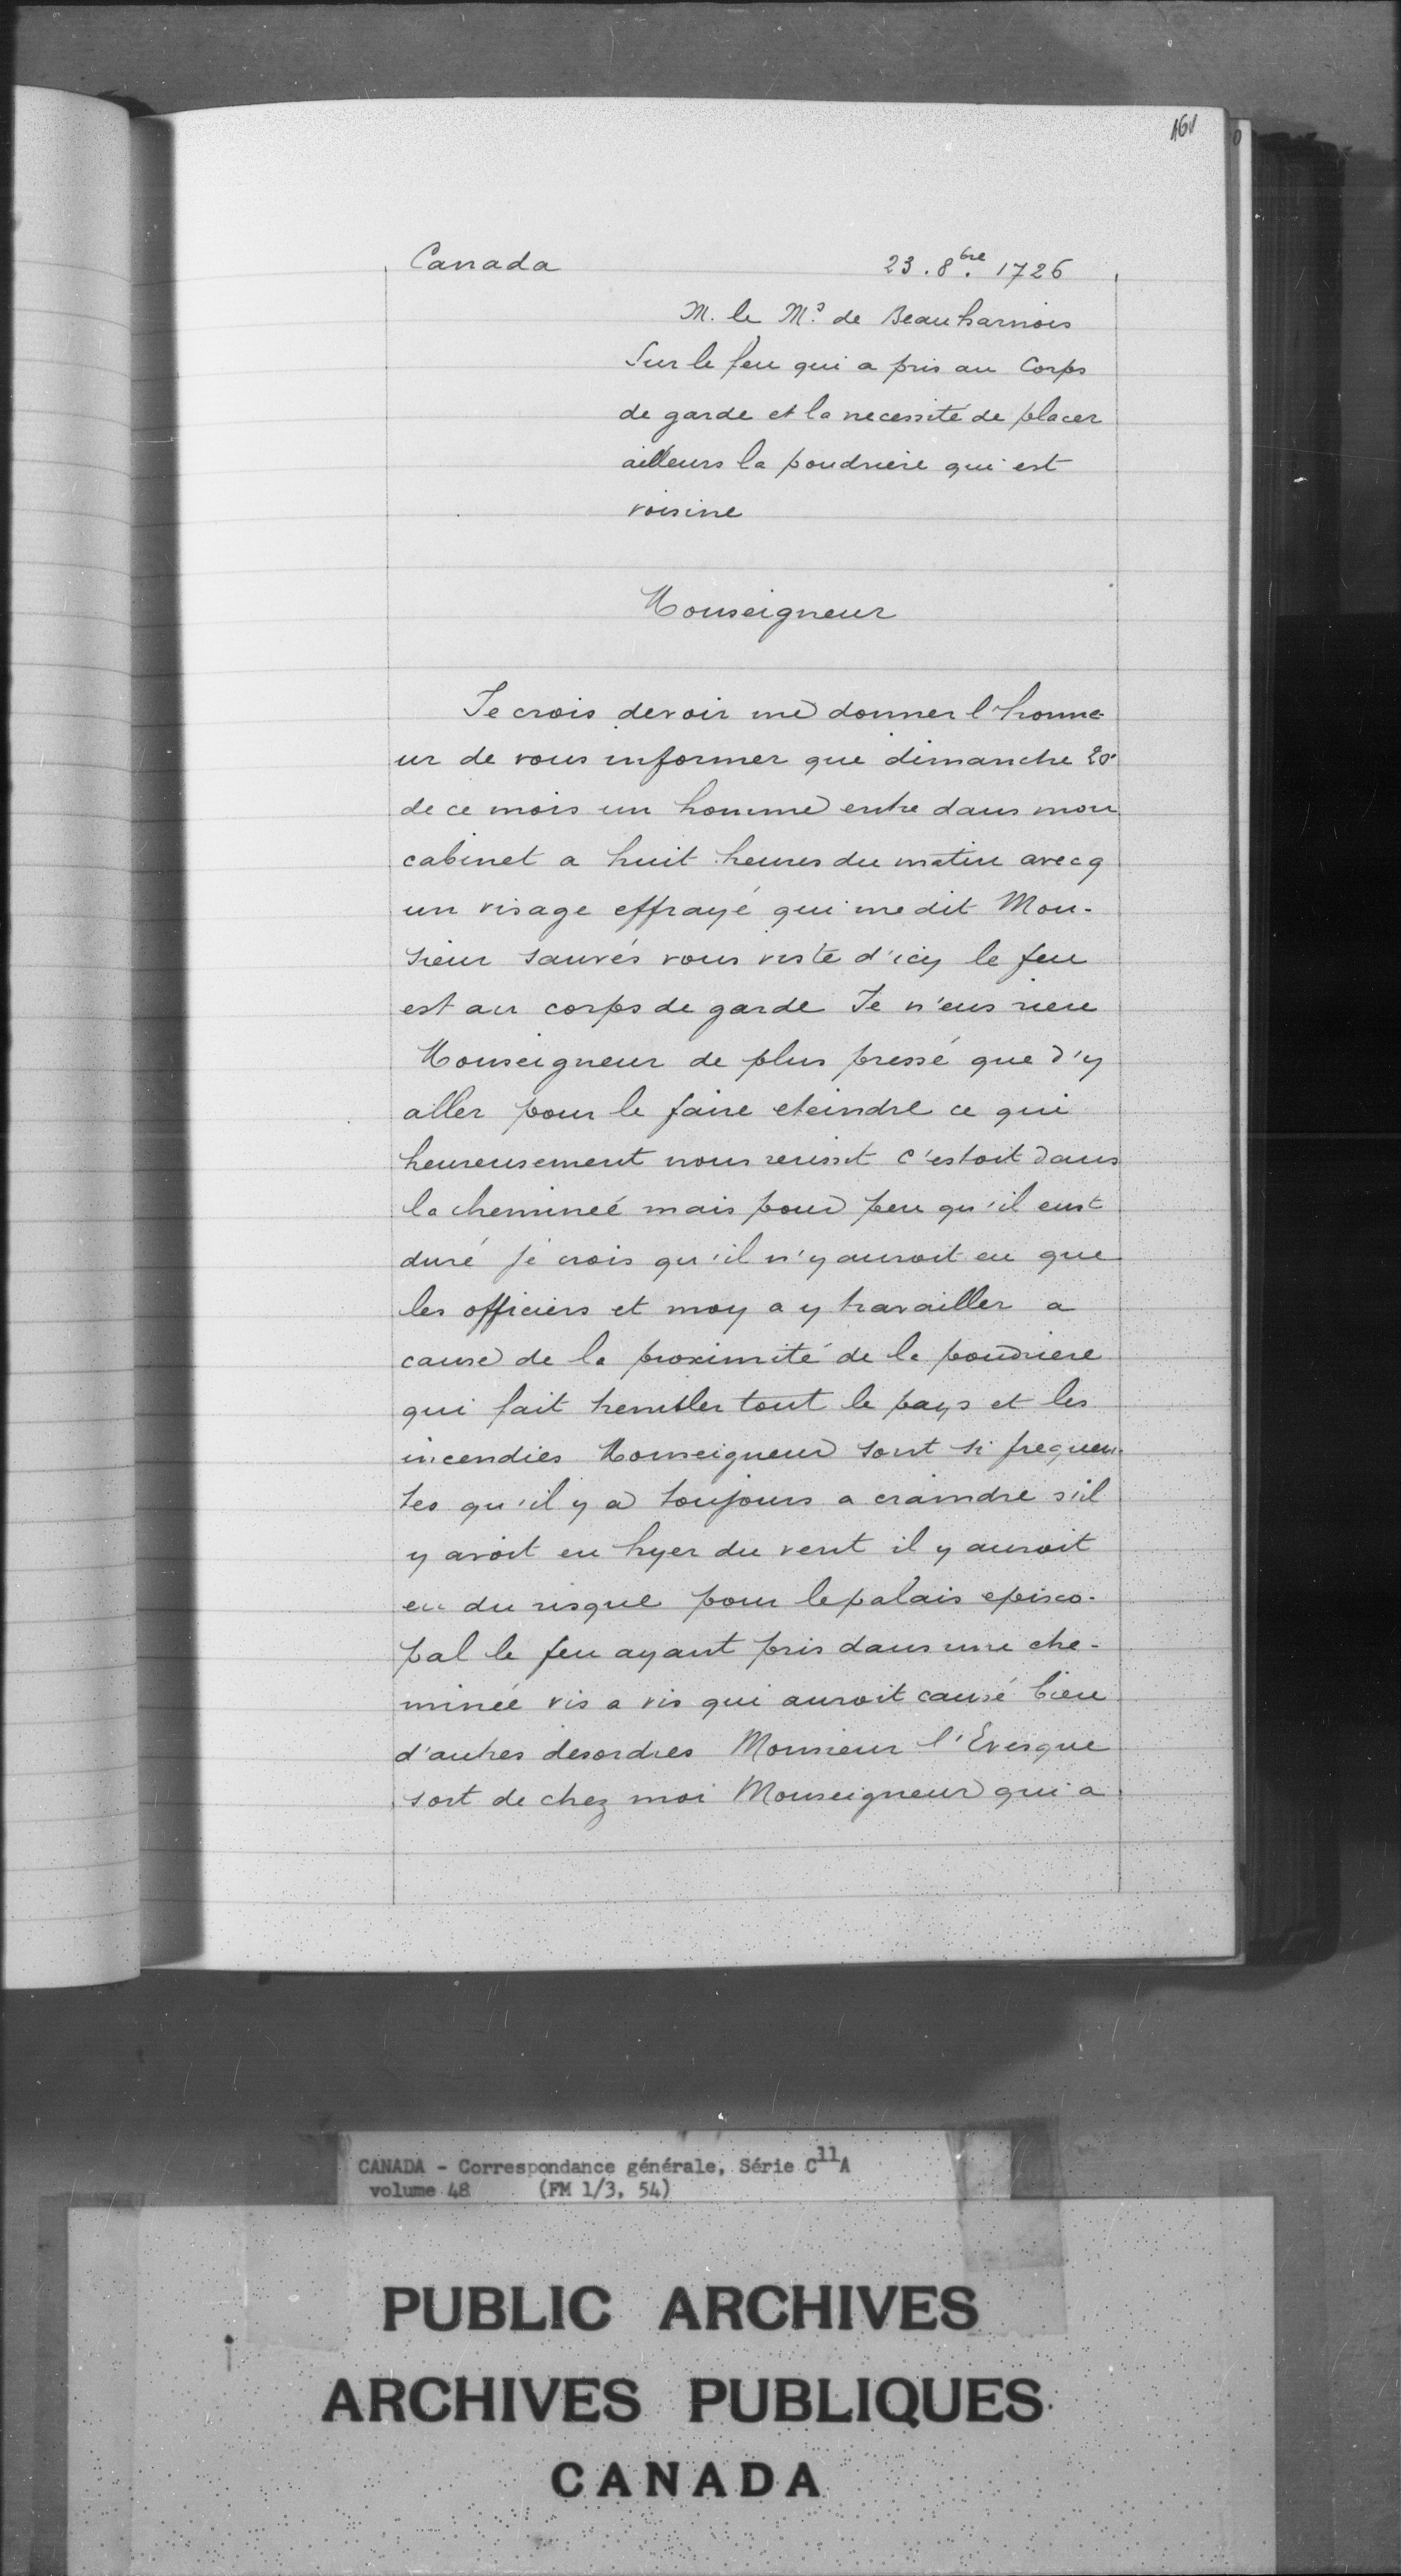 161
Canada 23. 8bre. 1726
M. le Ms. de Beauharnois
Sur le feu qui a pris au Corps
de garde et la necessité de placer
ailleurs la poudriere qui est
voisine
Monseigneur
Je crois devoir me donner l'honne-
ur de vous informer que dimanche 20
de ce mois un homme entre dans mon
cabinet a huit heures du matin avecq
un visage effrayé qui me dit Mon-
sieur sauvés vous viste d'icy le feu
est au corps de garde Je n'eus rien
Monseigneur de plus pressé que d'y
aller pour le faire eteindre ce qui
heureusement nous reussit c'estoit dans
la cheminée mais pour peu qu'il eust
duré je crois qu'il n'y auroit eu que
les officiers et moy a y travailler a
cause de la proximité de la poudriere
qui fait trembler tout le pays et les
incendies Monseigneur sont si frequen-
tes qu'il y a toujours a craindre s'il
y avoit eu hyer du vent il y auroit
eu du risque pour le palais episco-
pal le feu ayant pris dans une che-
minée vis a vis qui auroit causé bien
d'autres desordres Monsieur l'Evesque
sort de chez moi Monseigneur qui a
CANADA - Correspondance générale, Série C11A
volume 48 (FM 1/3, 54)
PUBLIC ARCHIVES
ARCHIVES PUBLIQUES
CANADA